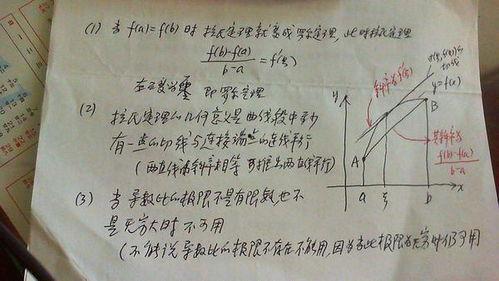 (1) 当 f(a)=f(b) 时 拉氏定理就变成罗尔定理, 此时拉氏定理
f(b)-f(a)
b-a
=f'(ξ)
左边变为零 即罗尔定理
(2) 拉氏定理的几何意义是曲线段中至少
有一点的切线与连接端点的连线平行
(两直线斜率相等 可推出两直线平行)
(3) 当导数比的极限不是有限数也不
是无穷大时 不可用
(不能说导数比的极限不存在不能用,因为当此极限为无穷时仍可用
y
斜率为f'(ξ)
y=f(x)
B
A
其斜率为
f(b)-f(a)
b-a
a
ξ
b
x